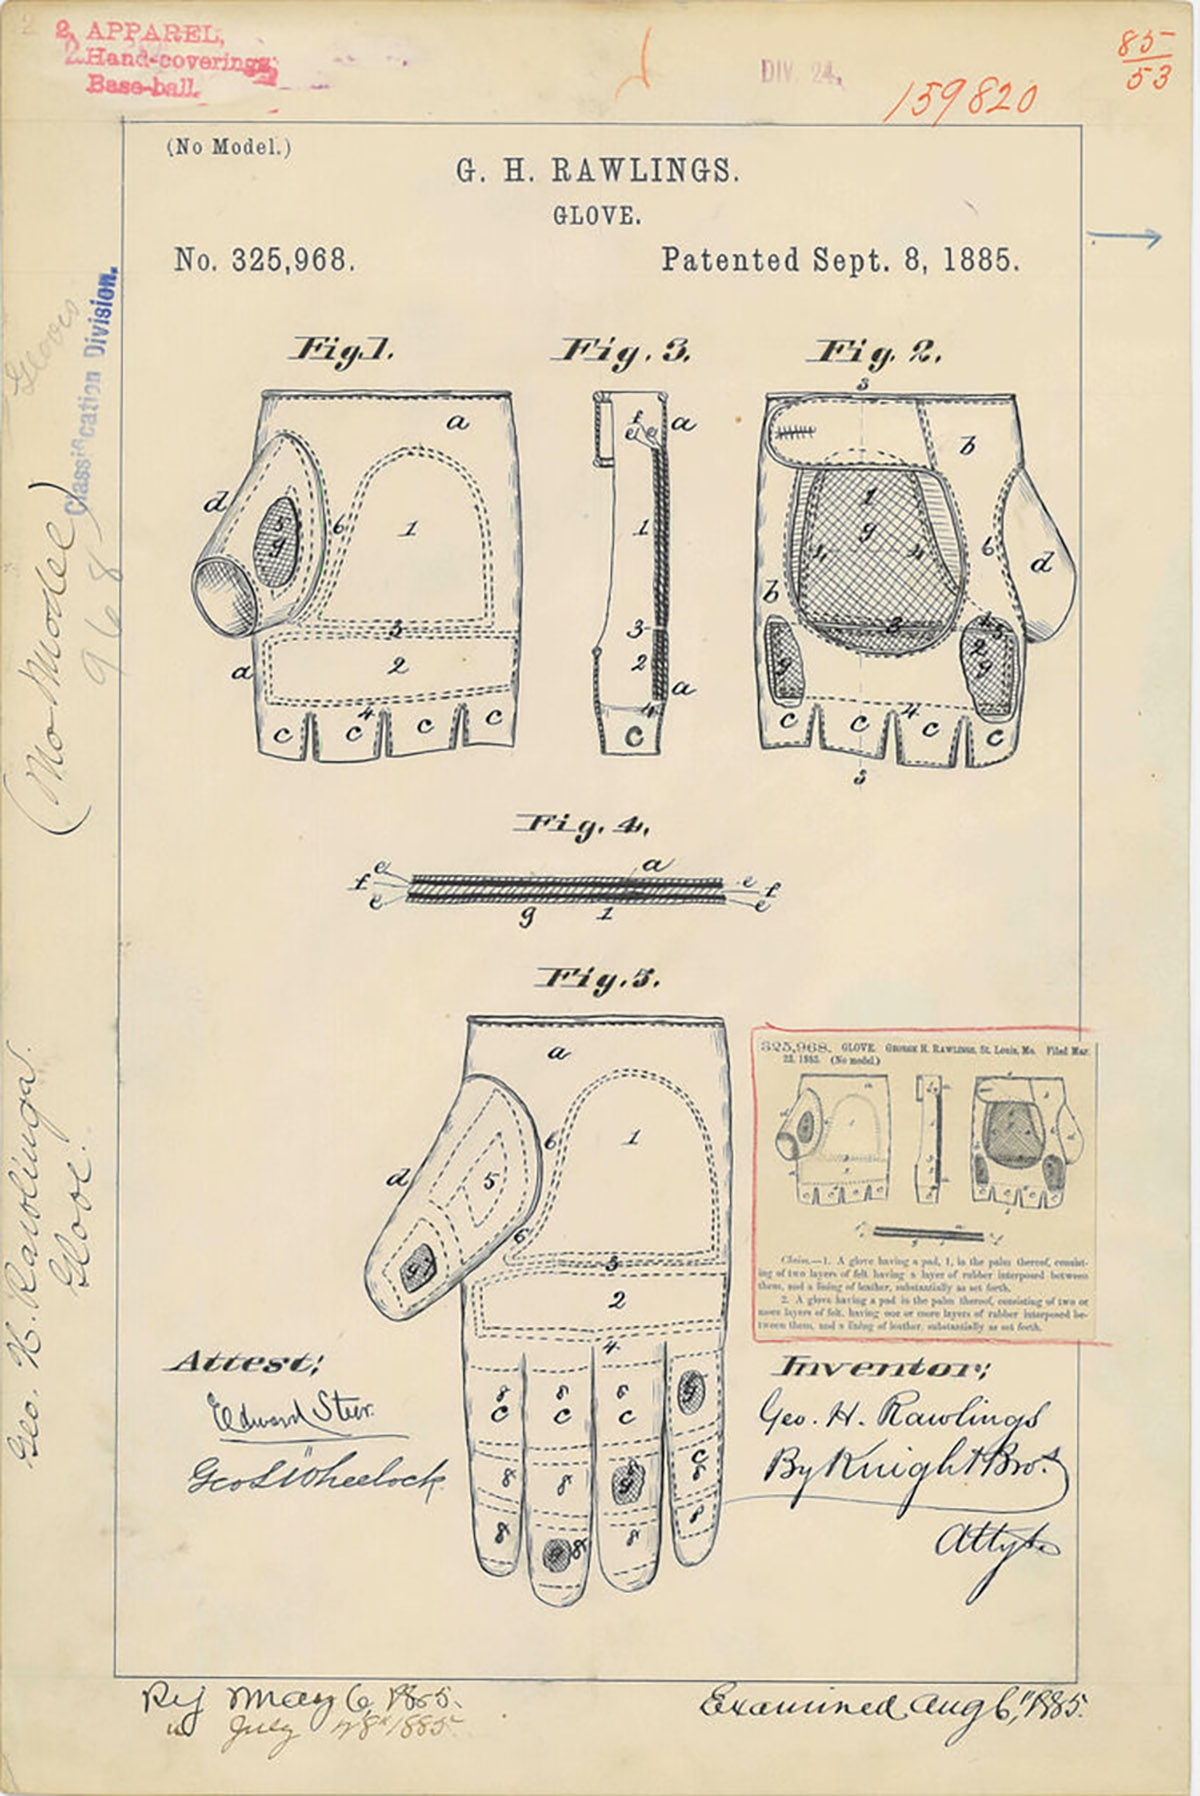 2. APPAREL,
2. Hand-coverings,
Base-ball.
DIV. 24.
159820
85
53
(No Model.)
G. H. RAWLINGS.
GLOVE.
No. 325,968.
Patented Sept. 8, 1885.
Classification Division.
Gloves
(No Model)
968
Geo. H. Rawlings.
Glove.
Fig. 1.
a
d
5
g
6
1
3
a
2
4
c
c
c
c
Fig. 3.
f
e
e
a
1
3
2
a
4
c
Fig. 2.
3
b
1
g
4
4
6
d
b
3
g
2
g
c
c
4
c
c
3
Fig. 4.
e
a
e
f
f
e
e
g
1
Fig. 5.
a
6
1
d
5
6
g
3
2
4
8
8
6
g
c
c
c
c
8
8
8
g
8
8
g
8
8
8
325,968. GLOVE. GEORGE H. RAWLINGS, St. Louis, Mo. Filed Mar.
(No model.)
Claim.—1. A glove having a pad, 1, in the palm thereof, consist-
ing of two layers of felt having a layer of rubber interposed between
them, and a lining of leather, substantially as set forth.
2. A glove having a pad in the palm thereof, consisting of two or
more layers of felt, having one or more layers of rubber interposed be-
tween them, and a lining of leather, substantially as set forth.
Attest;
Edward Steer.
Geo L Wheelock
Inventor;
Geo. H. Rawlings
By Knight Bros.
Attys.
Rej May 6, 1885.
" July 28" 1885
Examined Aug 6," 1885.